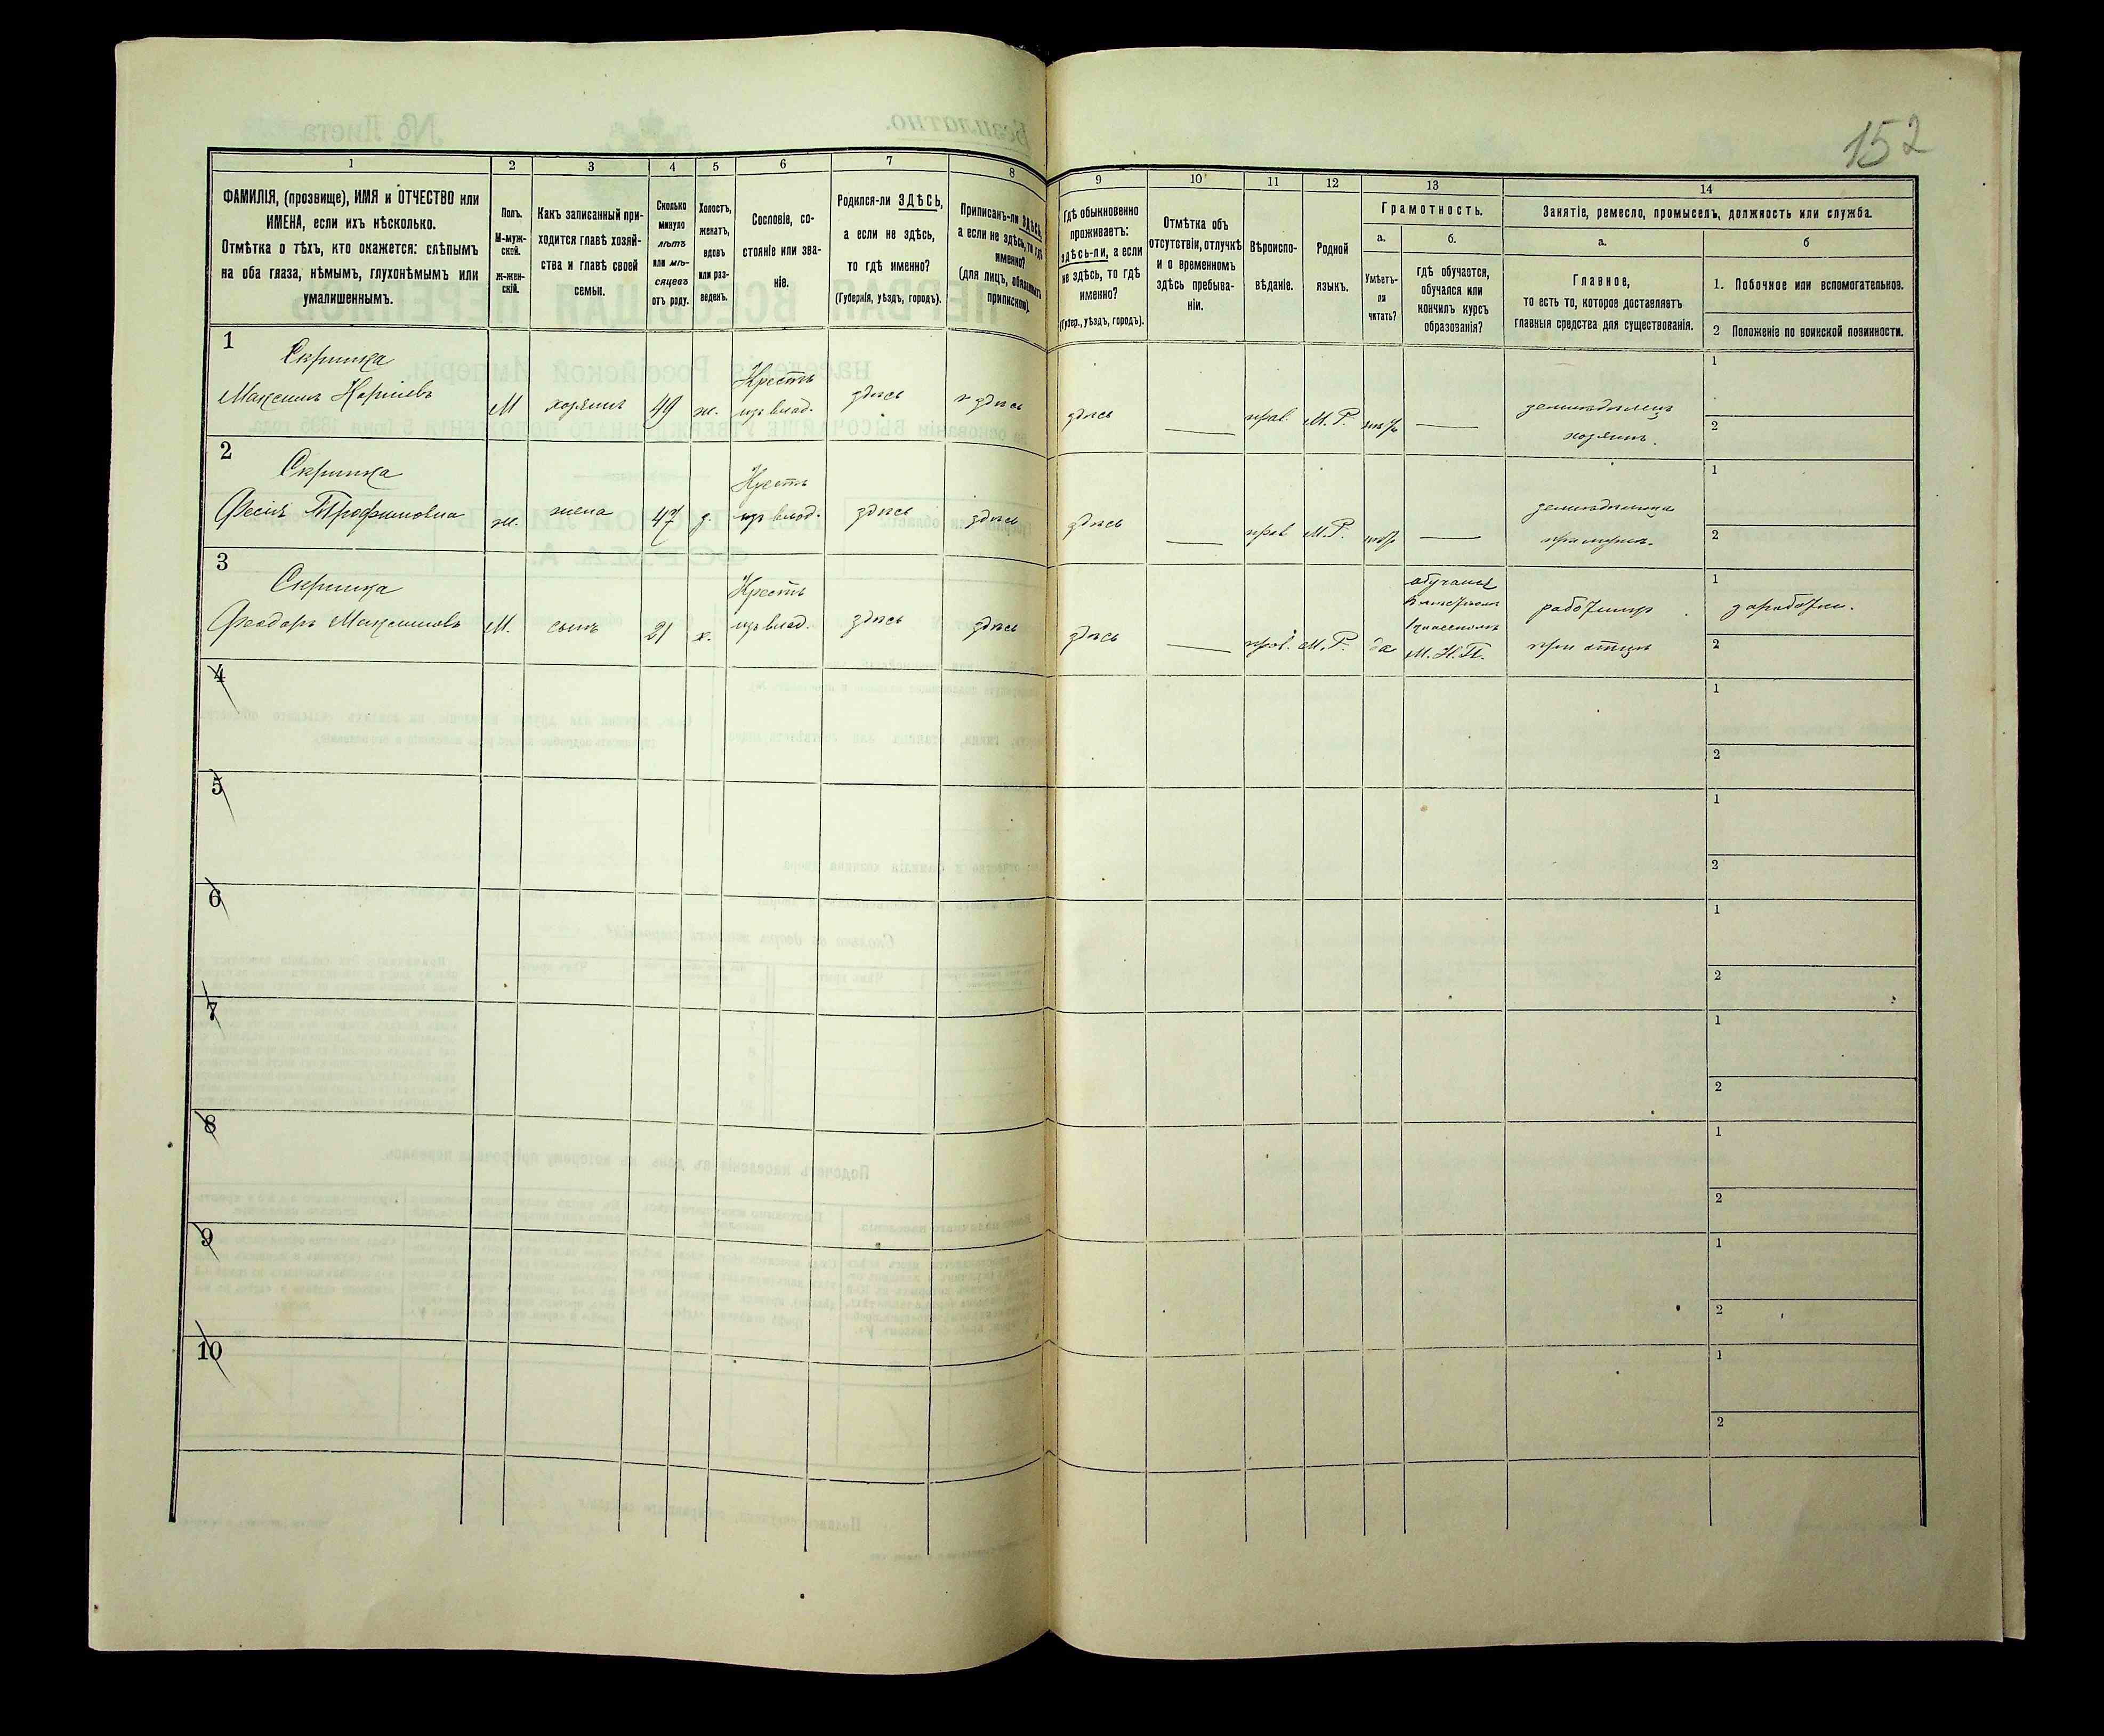 152
1
2
3
4
5
6
7
8
9
10
11
12
13
14
ФАМИЛІЯ, (прозвище), ИМЯ и ОТЧЕСТВО или
ИМЕНА, если ихъ нѣсколько.
Отмѣтка о тѣхъ, кто окажется: слѣпымъ
на оба глаза, нѣмымъ, глухонѣмымъ или
умалишеннымъ.
Полъ.
М-муж-
ской.
ж-жен-
скій.
Какъ записанный при-
ходится главѣ хозяй-
ства и главѣ своей
семьи.
Сколько
минуло
лѣтъ
или мѣ-
сяцевъ
отъ роду.
Холостъ,
женатъ,
вдовъ
или раз-
веденъ.
Сословіе, со-
стояніе или зва-
ніе.
Родился-ли ЗДѢСЬ,
а если не здѣсь,
то гдѣ именно?
(Губернія, уѣздъ, городъ).
Приписанъ-ли ЗДѢСЬ,
а если не здѣсь, то гдѣ
именно?
(для лицъ, обязанныхъ
припиской).
Гдѣ обыкновенно
проживаетъ:
здѣсь-ли, а если
не здѣсь, то гдѣ
именно?
(Губер., уѣздъ, городъ).
Отмѣтка объ
отсутствіи, отлучкѣ
и о временномъ
здѣсь пребыва-
ніи.
Вѣроиспо-
вѣданіе.
Родной
языкъ.
Грамотность.
а.
б.
Умѣетъ-
ли
читать?
гдѣ обучается,
обучался или
кончилъ курсъ
образованія?
Занятіе, ремесло, промыселъ, должность или служба.
а.
б
Главное,
то есть то, которое доставляетъ
главныя средства для существованія.
1. Побочное или вспомогательное.
2 Положеніе по воинской повинности.
1
Скрипка
Максимъ
М
хозяинъ
49
ж.
Крестъ
изъ влад.
здѣсь
здѣсь
здѣсь
прав.
М. Р.
нѣтъ
земледѣлецъ
хозяинъ.
1
2
2
Скрипка
Трофимовна
ж.
жена
47
з.
Крестъ
изъ влад.
здѣсь
здѣсь
здѣсь
прав.
М. Р.
нѣтъ
при мужѣ.
1
2
3
Скрипка
Феодоръ Максимовъ
М.
сынъ
21
х.
Крестъ
изъ влад.
здѣсь
здѣсь
здѣсь
прав.
М. Р.
да
обучался
М. Н. П.
работникъ
при отцѣ
1
2
4
1
2
5
1
2
6
1
2
7
1
2
8
1
2
9
1
2
10
1
2